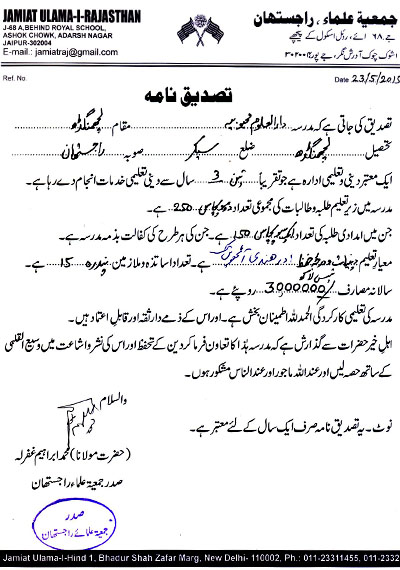 JAMIAT ULAMA-I-RAJASTHAN
J-68 A,BEHIND ROYAL SCHOOL,
ASHOK CHOWK, ADARSH NAGAR
JAIPUR-302004
E-mail.: jamiatraj@gmail.com
جمعیۃ علماء، راجستھان
جے ۶۸ اے، رائل اسکول کے پیچھے
اشوک چوک آدرش نگر، جے پور ۳۰۲۰۰۴
Ref. No.
Date 23/5/201
تصدیق نامہ
تصدیق کی جاتی ہے کہ مدرسہ دارالعلوم مقام لچھمنگڑھ
تحصیل لچھمنگڑھ ضلع سیکر صوبہ راجستھان
ایک معتبر دینی و تعلیمی ادارہ ہے جو تقریباً تین 3 سال سے دینی تعلیمی خدمات انجام دے رہا ہے۔
مدرسہ میں زیر تعلیم طلبہ و طالبات کی مجموعی تعداد دو سو پچاس 250 ہے۔
جن میں امدادی طلبہ کی تعداد ایک سو پچاس 150 ہے۔ جن کی ہر طرح کی کفالت بذمہ مدرسہ ہے۔
معیار تعلیم حفظ ہے۔ تعداد اساتذہ و ملازمین پندرہ 15 ہے۔
سالانہ مصارف تیس لاکھ 3000000/ روپئے ہے۔
مدرسہ کی تعلیمی کارکردگی الحمدللہ اطمینان بخش ہے۔ اور اس کے ذمے دار ثقہ اور قابل اعتماد ہیں۔
اہل خیر حضرات سے گذارش ہے کہ مدرسہ ہذا کا تعاون فرما کر دین کے تحفظ اور اس کی نشر و اشاعت میں وسیع القلبی
کے ساتھ حصہ لیں اور عنداللہ ماجور اور عندالناس مشکور ہوں۔
والسلام
نوٹ۔ یہ تصدیق نامہ صرف ایک سال کے لئے معتبر ہے۔
(حضرت مولانا) محمد ابراہیم غفرلہ
صدر جمعیۃ علماء راجستھان
صدر
جمعیۃ علمائے راجستھان
Jamiat Ulama-I-Hind 1, Bhadur Shah Zafar Marg, New Delhi- 110002, Ph.: 011-23311455, 011-2332